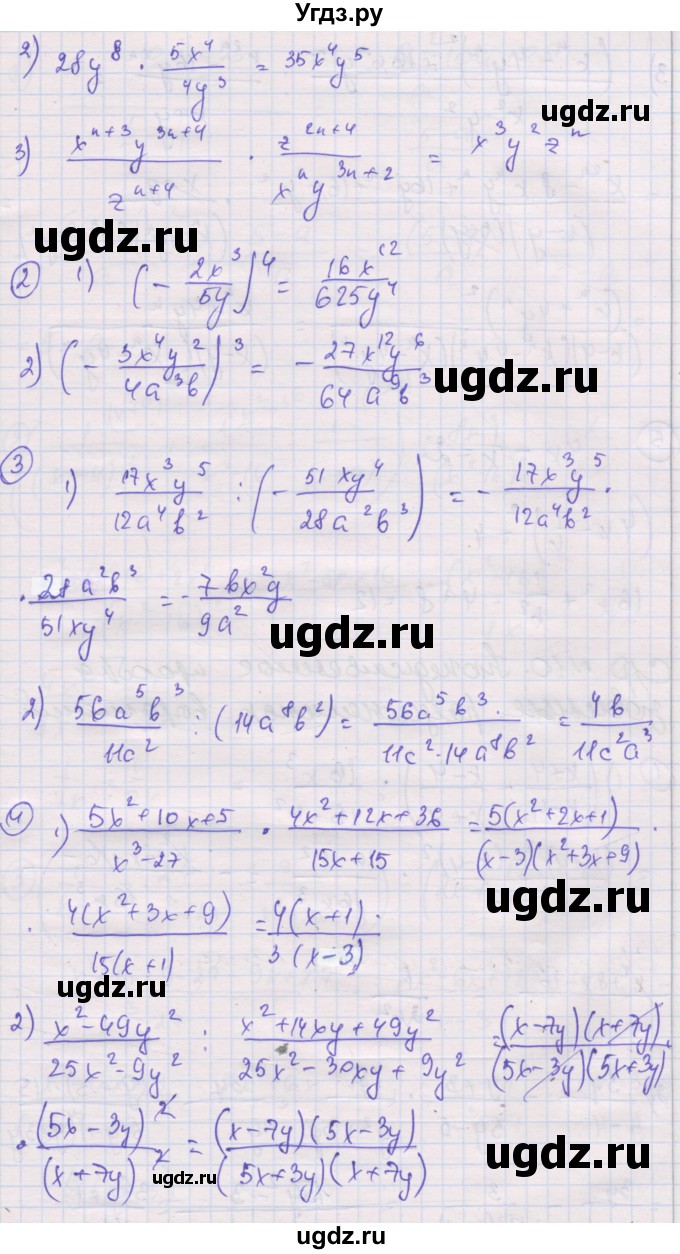 Угдз.ру
2) 28y^8 · 5x^4 / 4y^3 = 35x^4y^5
ugdz.ru
3) x^{n+3}y^{3n+4} / z^{n+4} · z^{2n+4} / x^n y^{3n+2} = x^3y^2z^n
ugdz.ru
② 1) (- 2x^3 / 5y)^4 = 16x^{12} / 625y^4
2) (- 3x^4y^2 / 4a^3b)^3 = - 27x^{12}y^6 / 64a^9b^3
ugdz.ru
③ 1) 17x^3y^5 / 12a^4b^2 : (- 51xy^4 / 28a^2b^3) = - 17x^3y^5 / 12a^4b^2 ·
· 28a^2b^3 / 51xy^4 = - 7bx^2y / 9a^2
ugdz.ru
2) 56a^5b^3 / 11c^2 : (14a^8b^2) = 56a^5b^3 · / 11c^2·14a^8b^2 = 4b / 11c^2a^3
④ 1) 5x^2+10x+5 / x^3-27 · 4x^2+12x+36 / 15x+15 = 5(x^2+2x+1) / (x-3)(x^2+3x+9) ·
ugdz.ru
· 4(x^2+3x+9) / 15(x+1) = 4(x+1) · / 3(x-3)
2) x^2-49y^2 / 25x^2-9y^2 : x^2+14xy+49y^2 / 25x^2-30xy+9y^2 = (x-7y)(x+7y) / (5x-3y)(5x+3y) ·
· (5x-3y)^2 / (x+7y)^2 = (x-7y)(5x-3y) / (5x+3y)(x+7y)
ugdz.ru
ugdz.ru
ugdz.ru